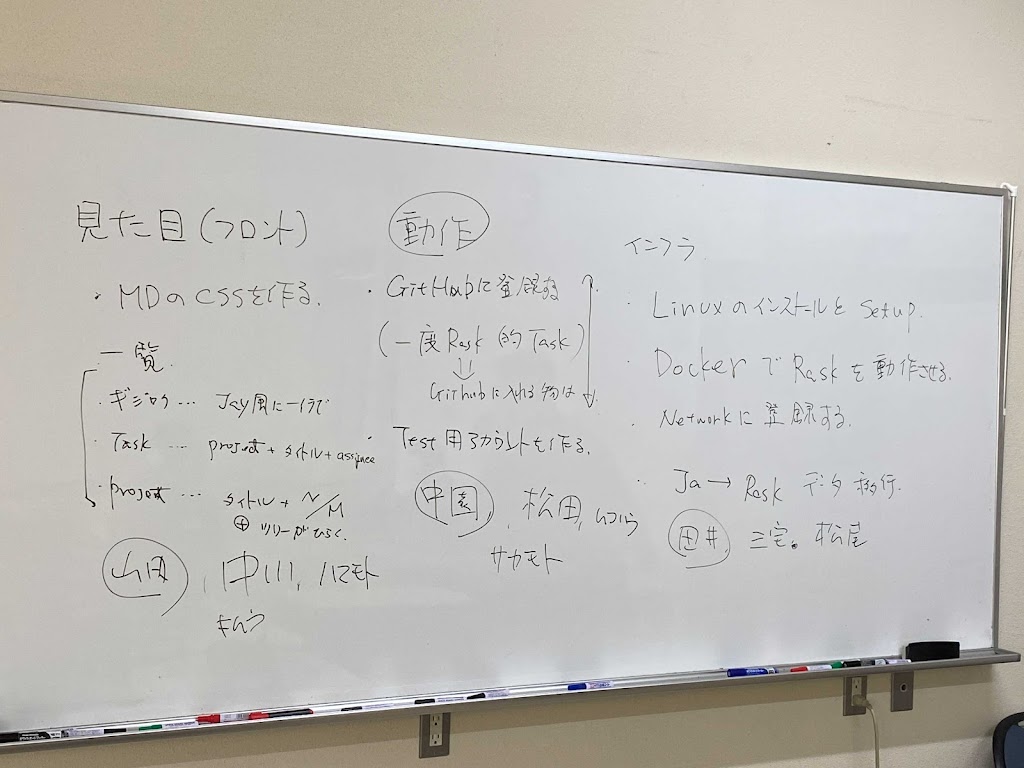 見た目(フロント)
・MDのCSSを作る.
一覧.
・ギジロク… Jay風に一行で
・Task … project + タイトル + assignee
・project … タイトル + N/M
⊕ ツリーがひらく.
中川, ハマモト
動作
・GitHubに登録する
(一度Rask的Task)
⇓
Githubに入れる物は
・Test用アカウントを作る.
中園, 松田,
サカモト
インフラ
・LinuxのインストールとSetup.
・DockerでRaskを動作させる.
・Networkに登録する.
・Ja→Rask データ移行.
田井. 三宅. 松尾